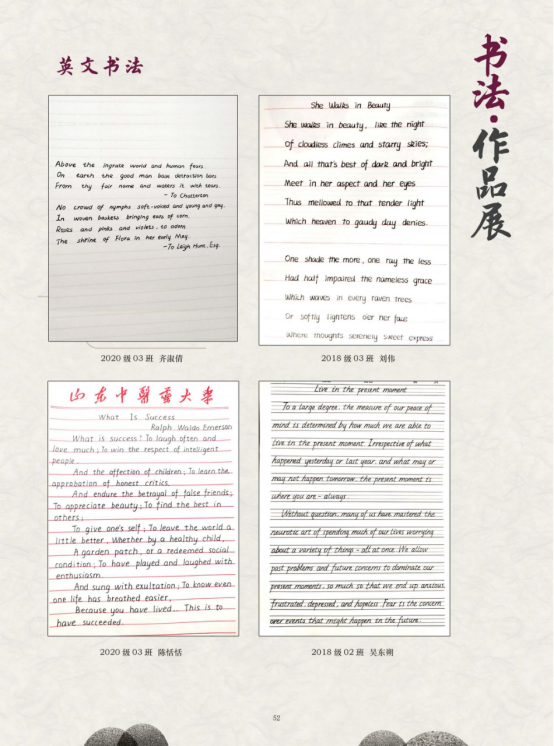 书法·作品展
英文书法
Above the ingrate world and human fears.
On earth the good man base detraction bars
From thy fair name and waters it with tears.
- To Chatterton
No crowd of nymphs soft-voiced and young and gay.
In woven baskets bringing ears of corn.
Roses and pinks and violets, to adorn
The shrine of Flora in her early May.
- To Leigh Hunt, Esq.
2020 级 03 班 齐淑倩
She Walks in Beauty
She walks in beauty, like the night
Of cloudless climes and starry skies;
And all that's best of dark and bright
Meet in her aspect and her eyes
Thus mellowed to that tender light
Which heaven to gaudy day denies.
One shade the more, one ray the less
Had half impaired the nameless grace
Which waves in every raven tress
Or softly lightens o'er her face
Where thoughts serenely sweet express
2018 级 03 班 刘伟
山东中医药大学
What Is Success
Ralph Waldo Emerson
What is success? To laugh often and
love much; To win the respect of intelligent
people.
And the affection of children; To learn the
approbation of honest critics.
And endure the betrayal of false friends;
To appreciate beauty; To find the best in
others;
To give one's self; To leave the world a
little better, Whether by a healthy child,
A garden patch, or a redeemed social
condition; To have played and laughed with
enthusiasm.
And sung with exultation; To know even
one life has breathed easier,
Because you have lived. This is to
have succeeded.
2020 级 03 班 陈恬恬
Live in the present moment
To a large degree, the measure of our peace of
mind is determined by how much we are able to
live in the present moment. Irrespective of what
happened yesterday or last year, and what may or
may not happen tomorrow, the present moment is
where you are - always.
Without question, many of us have mastered the
neurotic art of spending much of our lives worrying
about a variety of things - all at once. We allow
past problems and future concerns to dominate our
present moments, so much so that we end up anxious,
frustrated, depressed, and hopeless. Fear is the concern
over events that might happen in the future.
2018 级 02 班 吴东朔
52